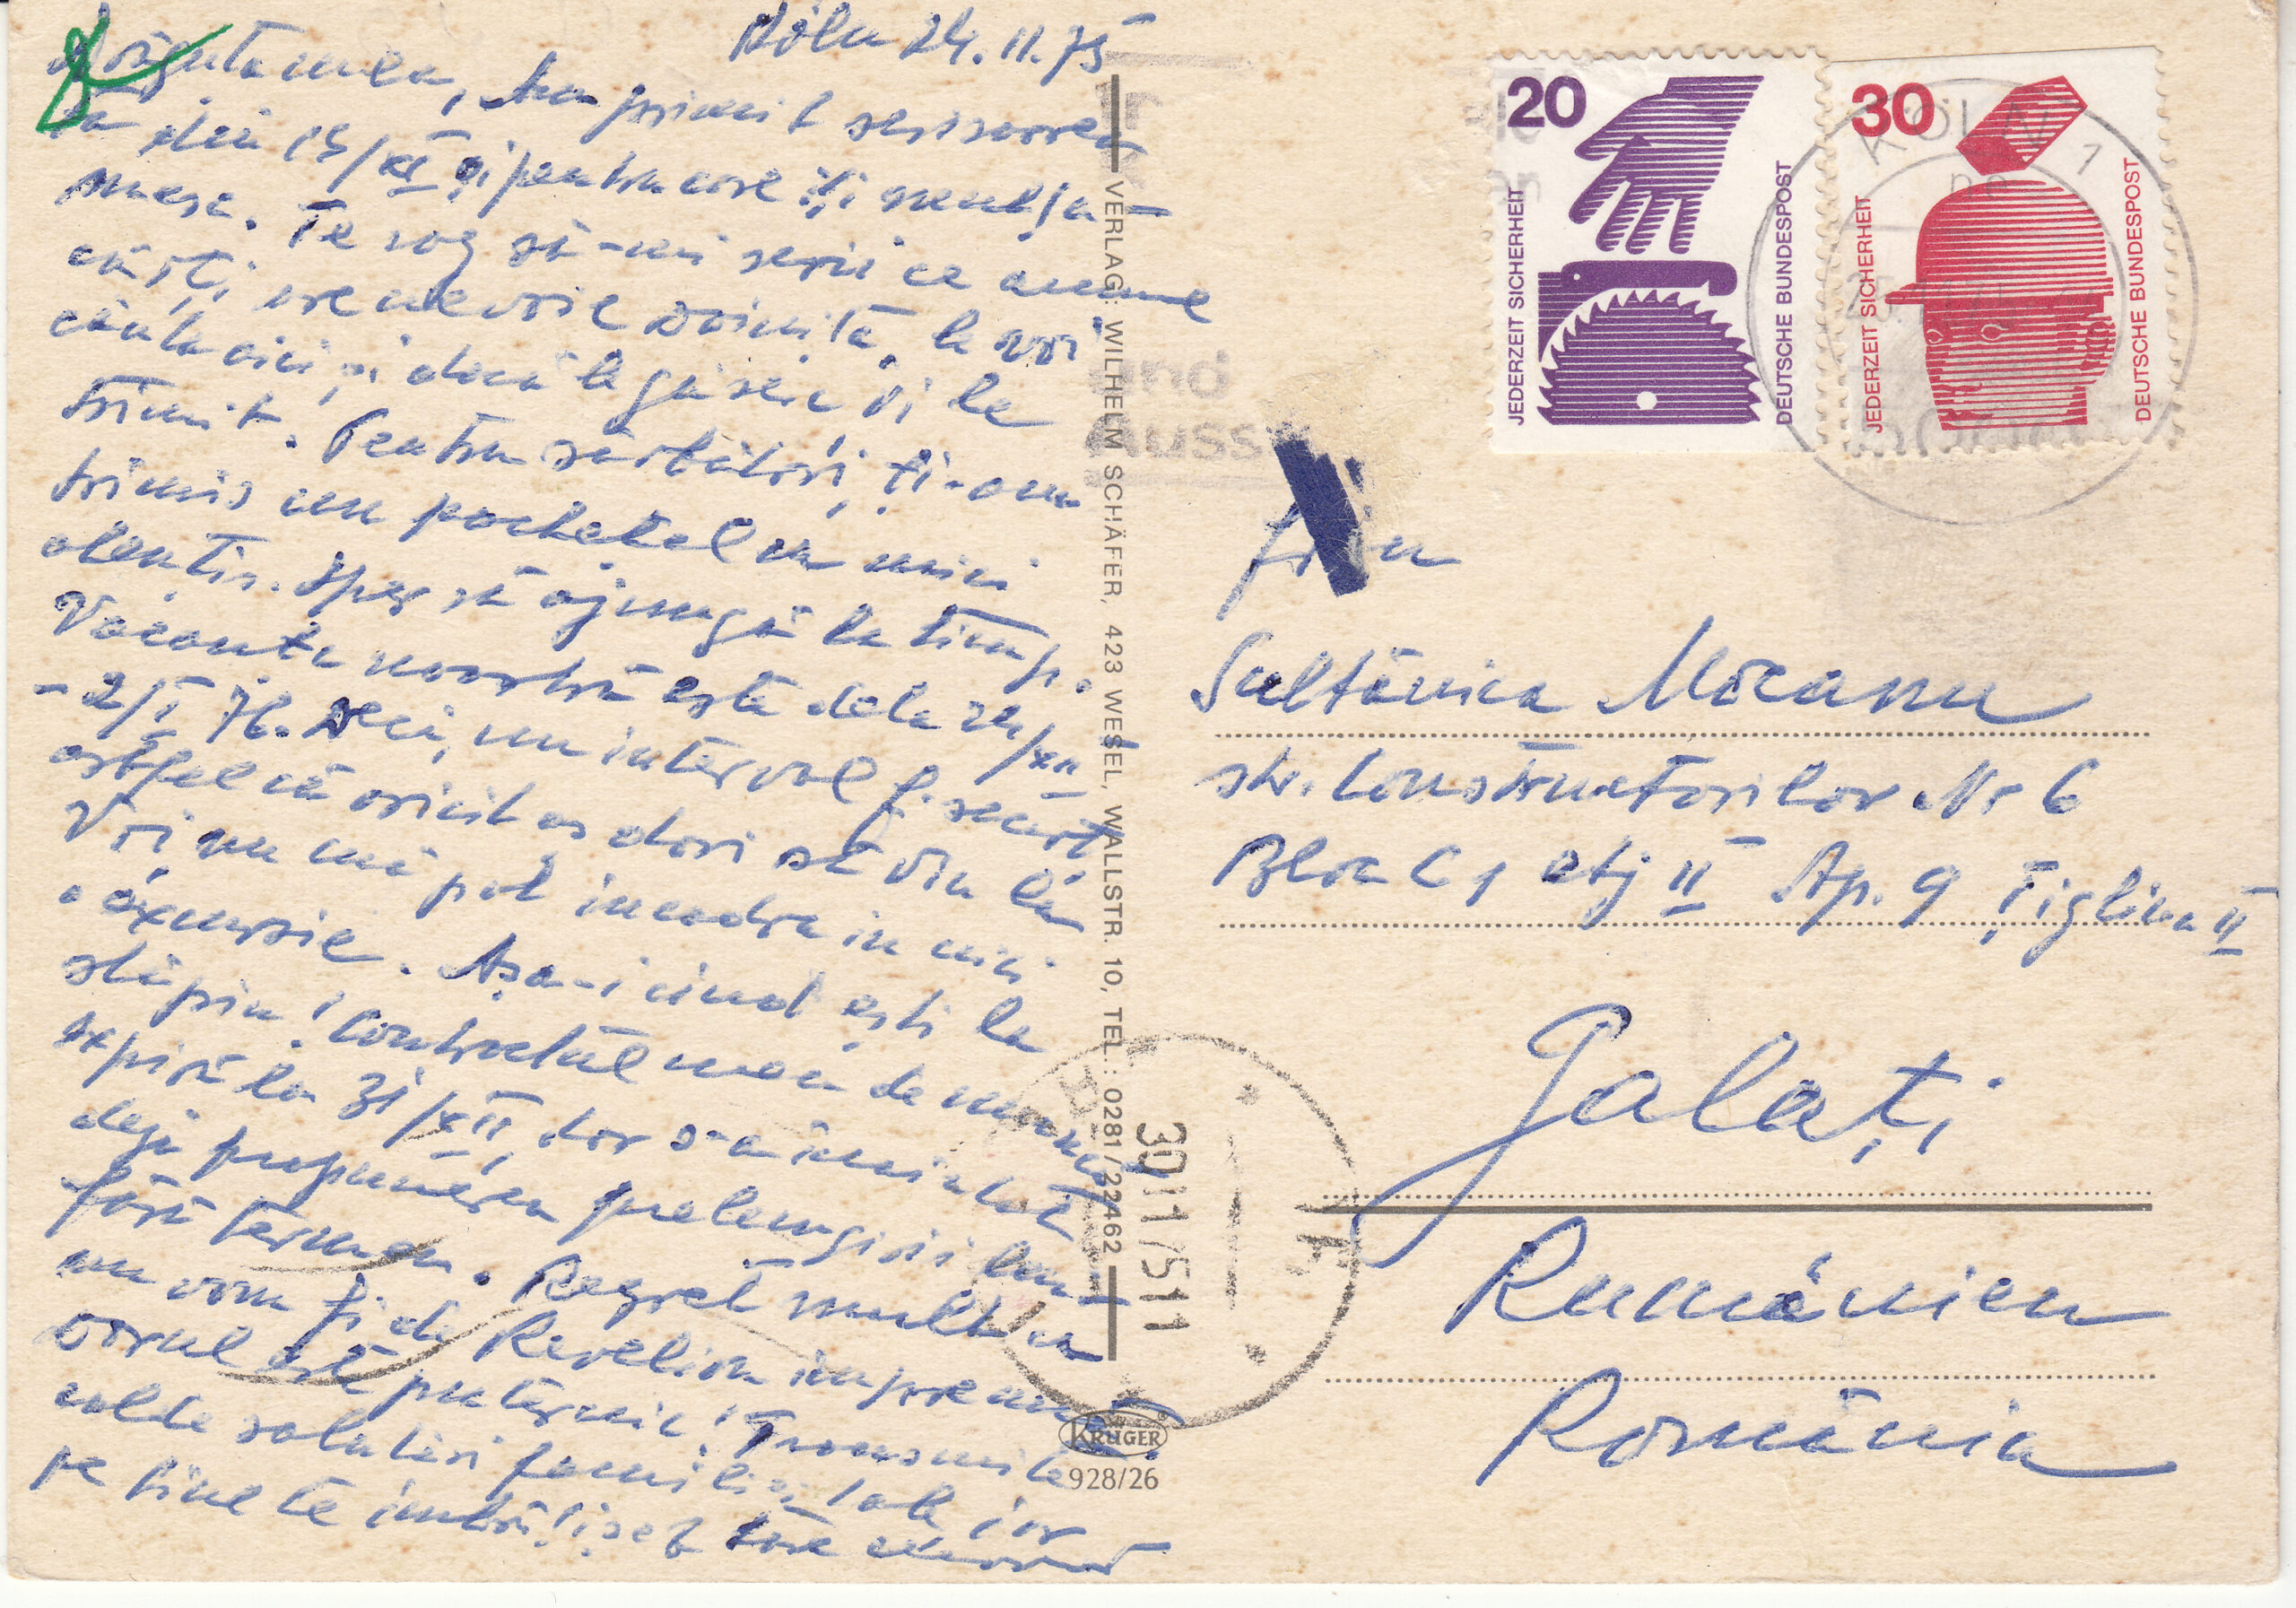 Köln 24.11.75
Drăguța mea, Am primit scrisorea
ta din 15/XI și pentru care îți mulțu-
mesc. Te rog să-mi scrii ce anume
cărți are nevoie Doinița, le voi
căuta aici și dacă le găsesc, ți le
trimit. Pentru sărbători, ți-am
trimis un pachețel cu mici
atenții. Sper să ajungă la timp.
Vacanța noastră este dela 24/XII
- 2/I 76. Deci, un interval f. scurt
astfel că oricît aș dori să viu la
Voi nu mă pot incadra in nici
o excursie. Așa-i cind ești la
stăpin! Contractul meu de muncă
expiră la 31/XII, dar s-a inaintat
deja propunerea prelungirii lui
fără termen. Regret mult că
nu vom fi de Revelion impreună.
Dorul este puternic! Transmite
calde salutări familiei tale iar
pe tine te imbrățișez
20
JEDERZEIT SICHERHEIT
DEUTSCHE BUNDESPOST
30
JEDERZEIT SICHERHEIT
DEUTSCHE BUNDESPOST
KÖLN 1
und
VERLAG: WILHELM SCHÄFER, 423 WESEL, WALLSTR. 10, TEL.: 0281/22462
Sultănica Mocanu
str. Constructorilor Nr 6
Bloc C1 etj II Ap. 9 Țiglina II
Galați
Rumänien
România
30 11 75 11
KRÜGER
928/26